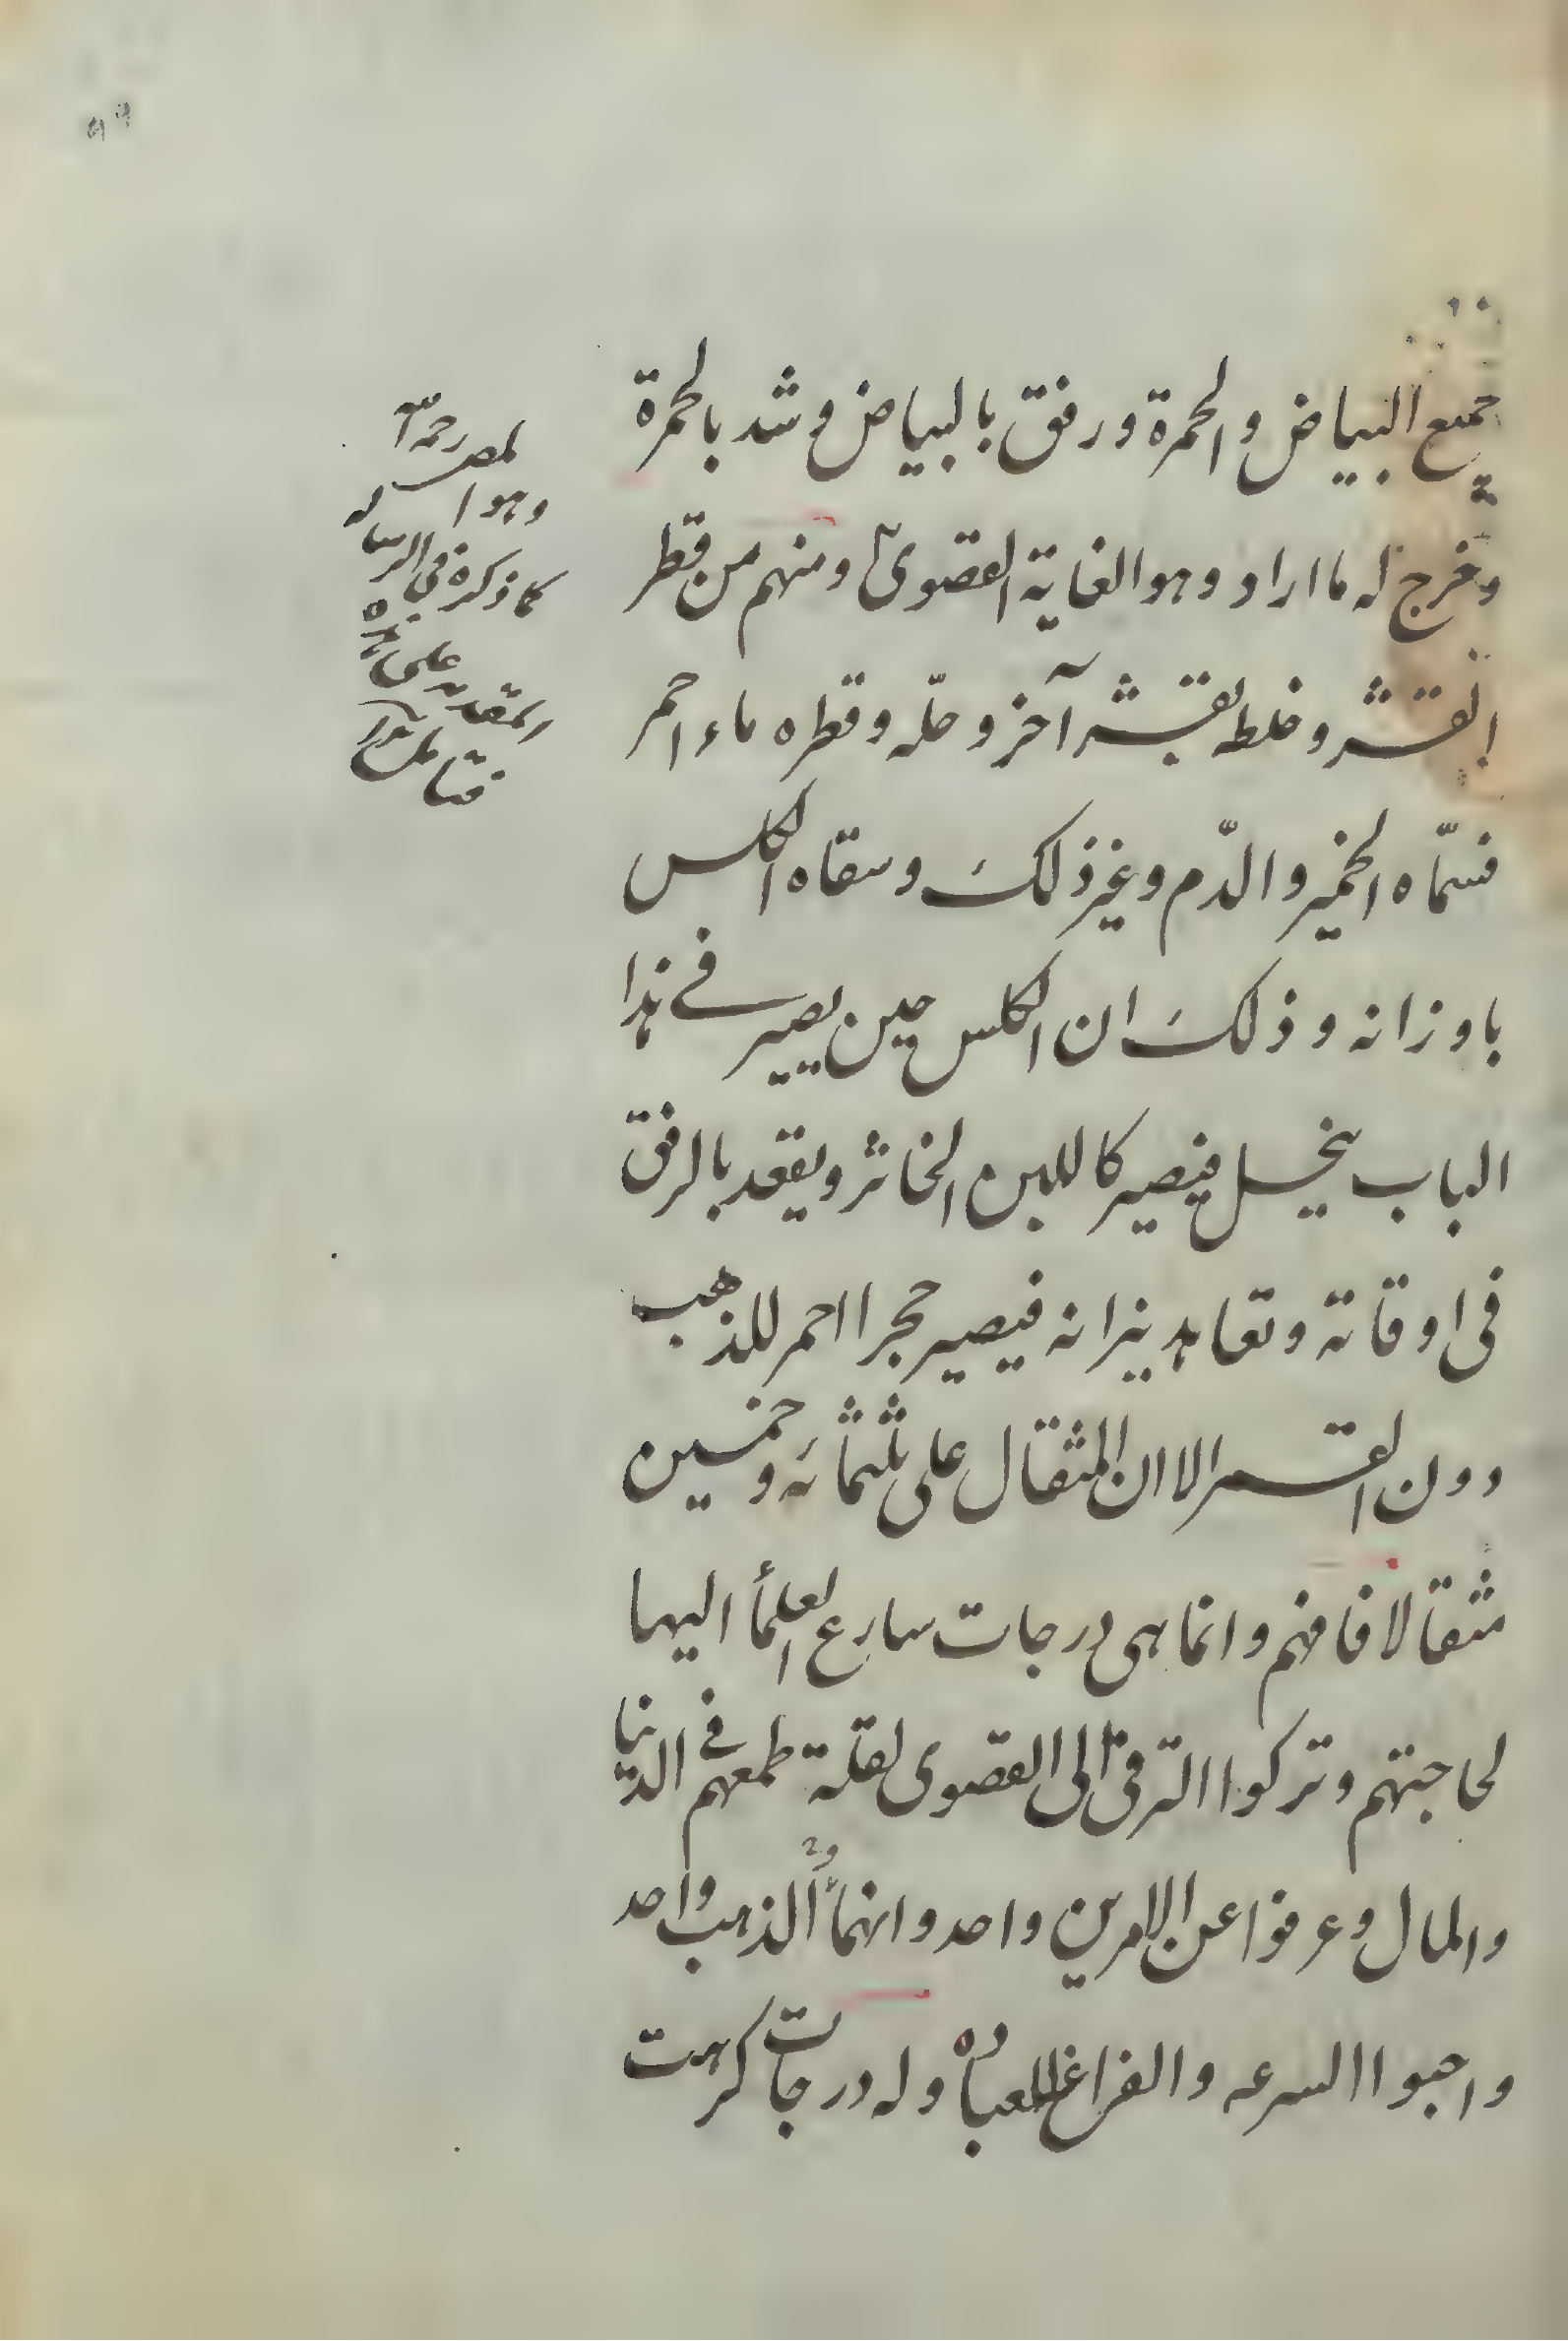 جميع البياض والحمرة ورفق بالبياض وشد بالحمرة
وخرج له ما اراد وهو الغاية القصوى ومنهم من قطر
القشر وخلطه بقشر آخر وحلّه وقطره ماء احمر
فسمّاه الخمير والدّم وغير ذلك وسقاه الكلس
باوزانه وذلك ان الكلس حين يصير في هذا
الباب ينحل فيصير كاللبن الخاثر ويعقد بالرفق
فى اوقاته وتعاهد نيرانه فيصير حجرا احمر للذهب
دون القمر الا ان المثقال على ثلثمائه وخمسين
مثقالا فافهم وانما هى درجات سارع العلمأ اليها
لحاجتهم وتركوا الترقى الى القصوى لقلة طمعهم في الدنيا
والمال وعرفوا عن الامرين واحد وانما الذهب واحد
واحبوا السرعه والفراغ للعباده وله درجات كرهت
لمص رحمه
وهو
كما ذكره فى الرساله
على
المقدمه
فتامل